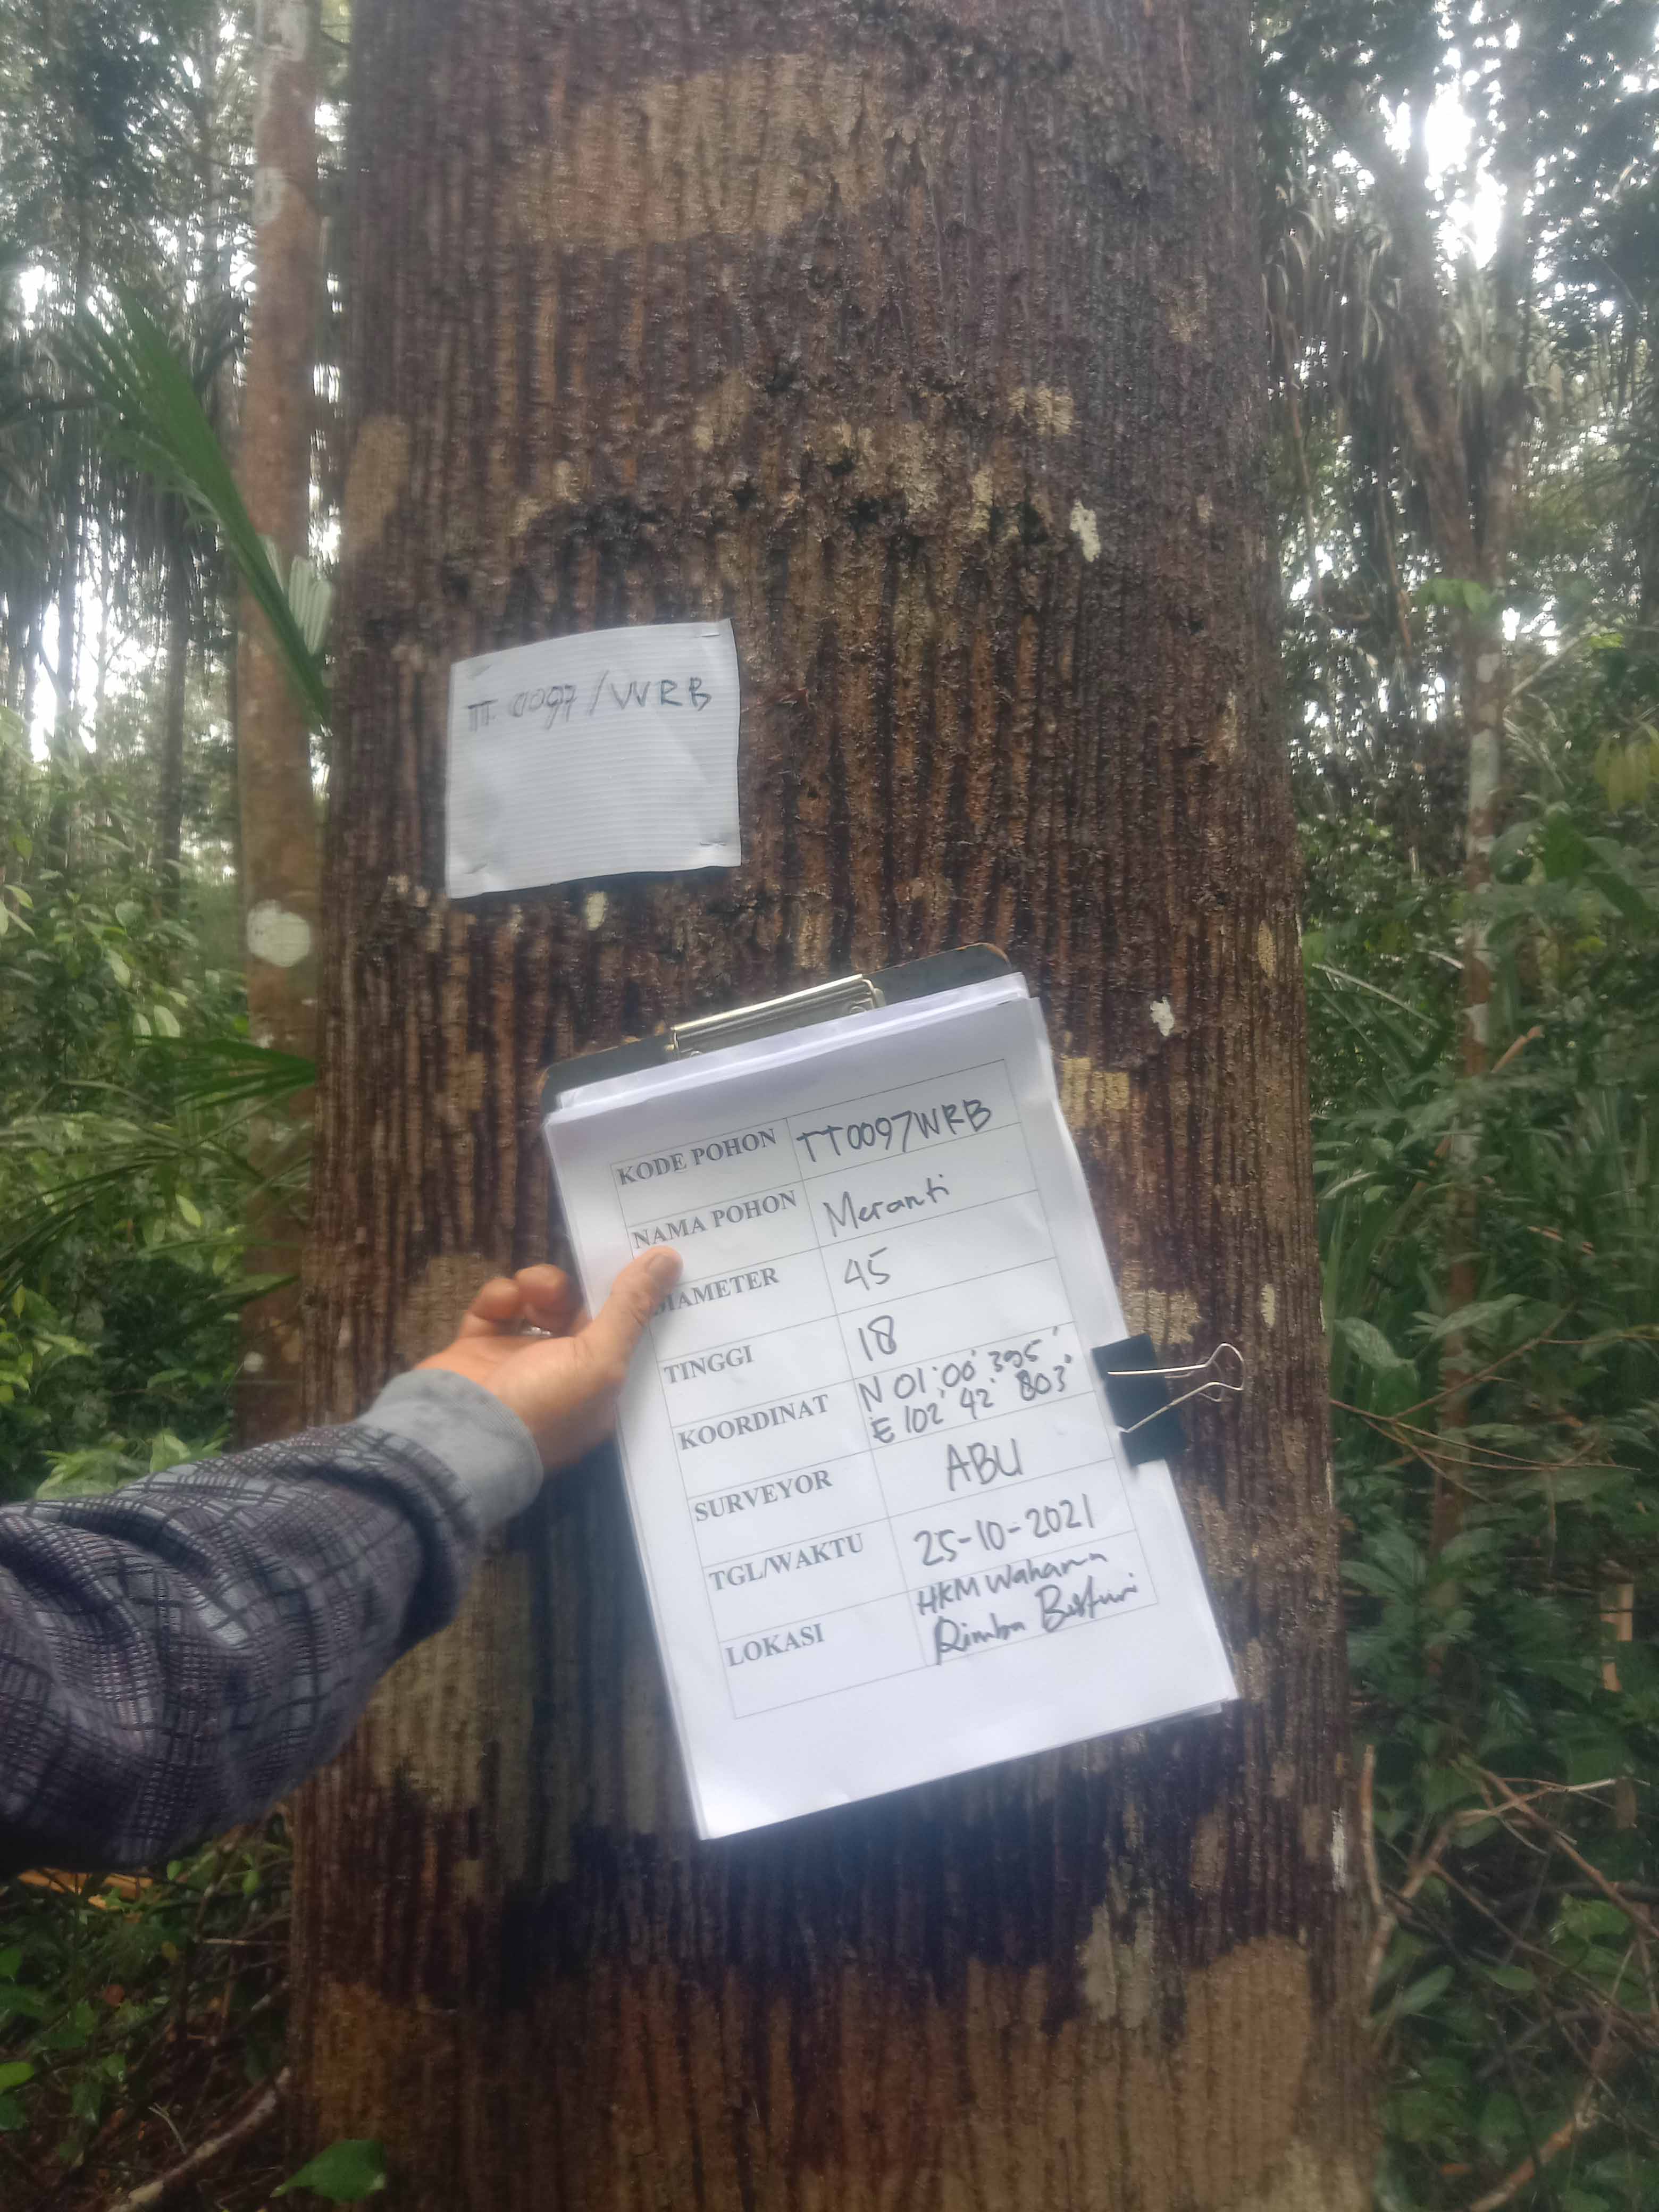 TT 0097/WRB
KODE POHON TT0097WRB
NAMA POHON Meranti
DIAMETER 45
TINGGI 18
KOORDINAT N 01°00' 395'
E 102° 42' 803'
SURVEYOR ABU
TGL/WAKTU 25-10-2021
LOKASI HKM Wahana
Rimba Bestari